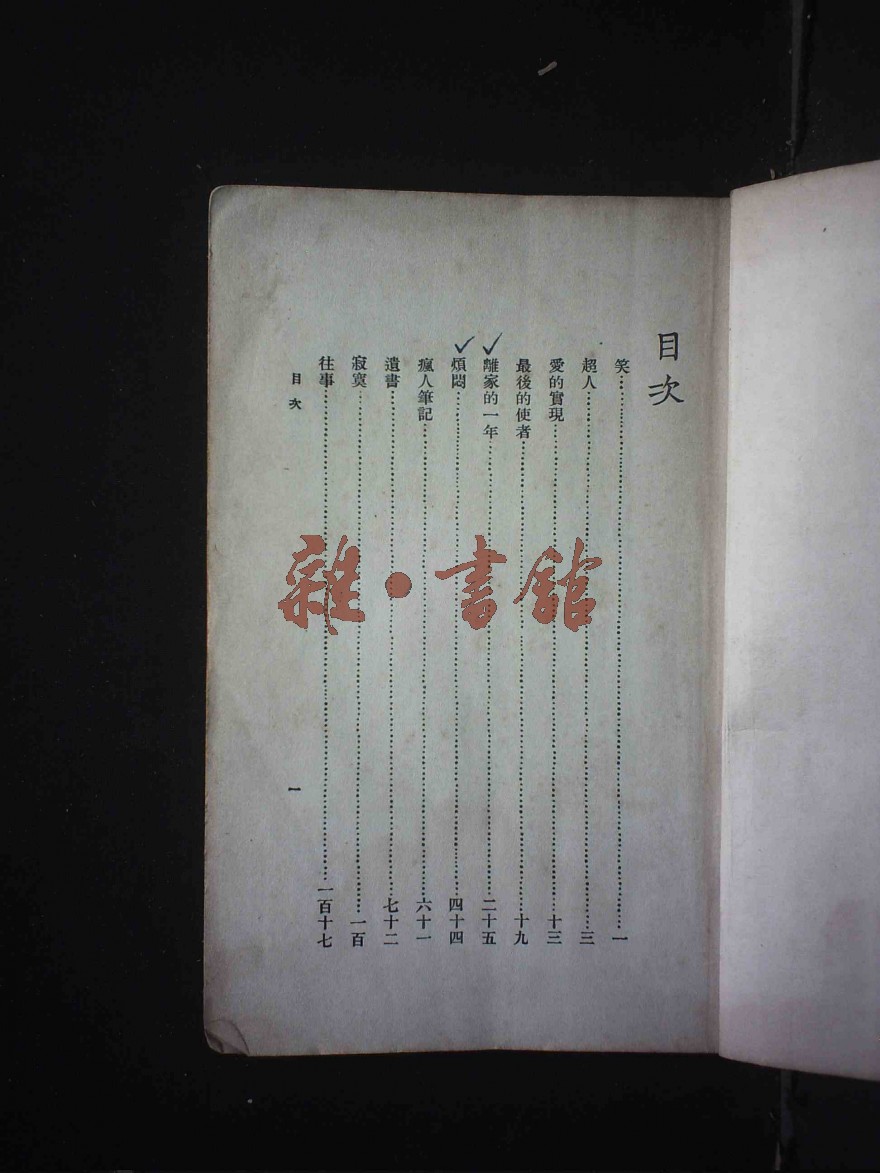 目次
笑……一
超人……三
愛的實現……十三
最後的使者……十九
離家的一年……二十五
煩悶……四十四
瘋人筆記……六十一
遺書……七十二
寂寞……一百
往事……一百十七
目次
一
雜·書館